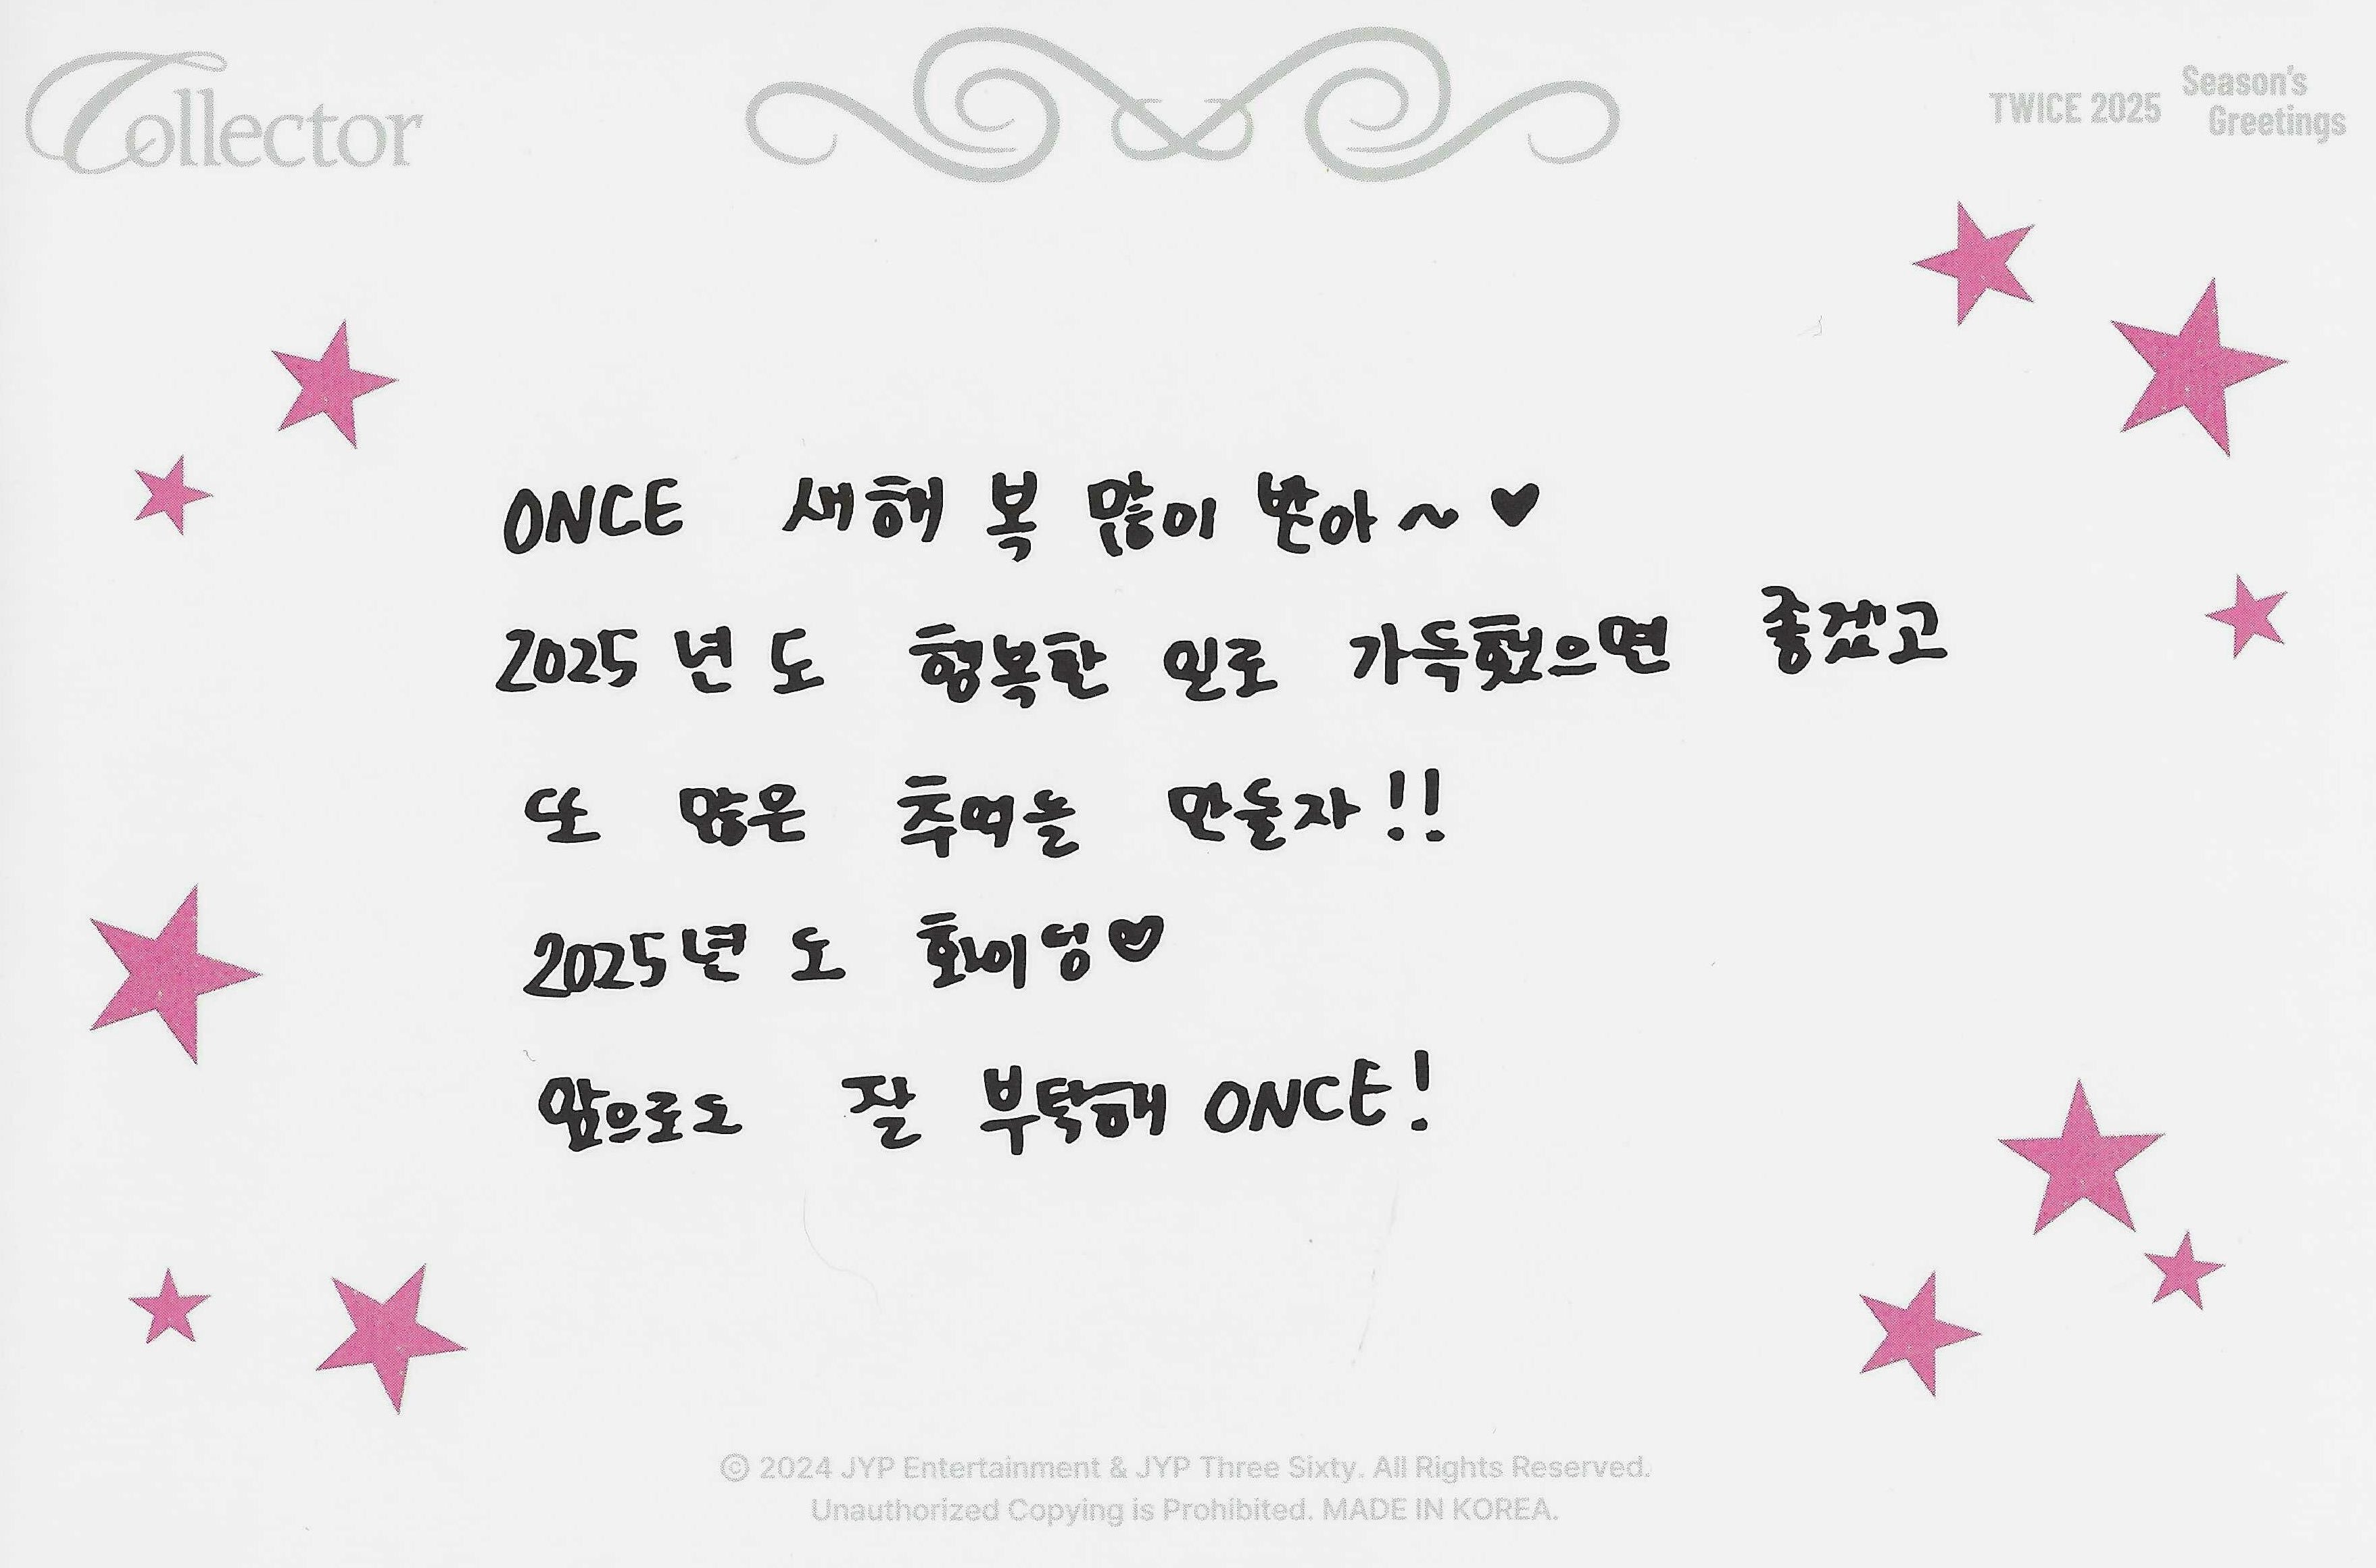 Collector
TWICE 2025 Season's Greetings
ONCE 새해 복 많이 받아~♥
2025년도 행복한 일로 가득했으면 좋겠고
또 많은 추억을 만들자!!
2025년도 화이팅♥
앞으로도 잘 부탁해 ONCE!
© 2024 JYP Entertainment & JYP Three Sixty. All Rights Reserved.
Unauthorized Copying is Prohibited. MADE IN KOREA.